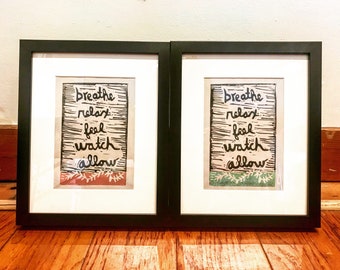 breathe
relax
feel
watch
allow
breathe
relax
feel
watch
allow